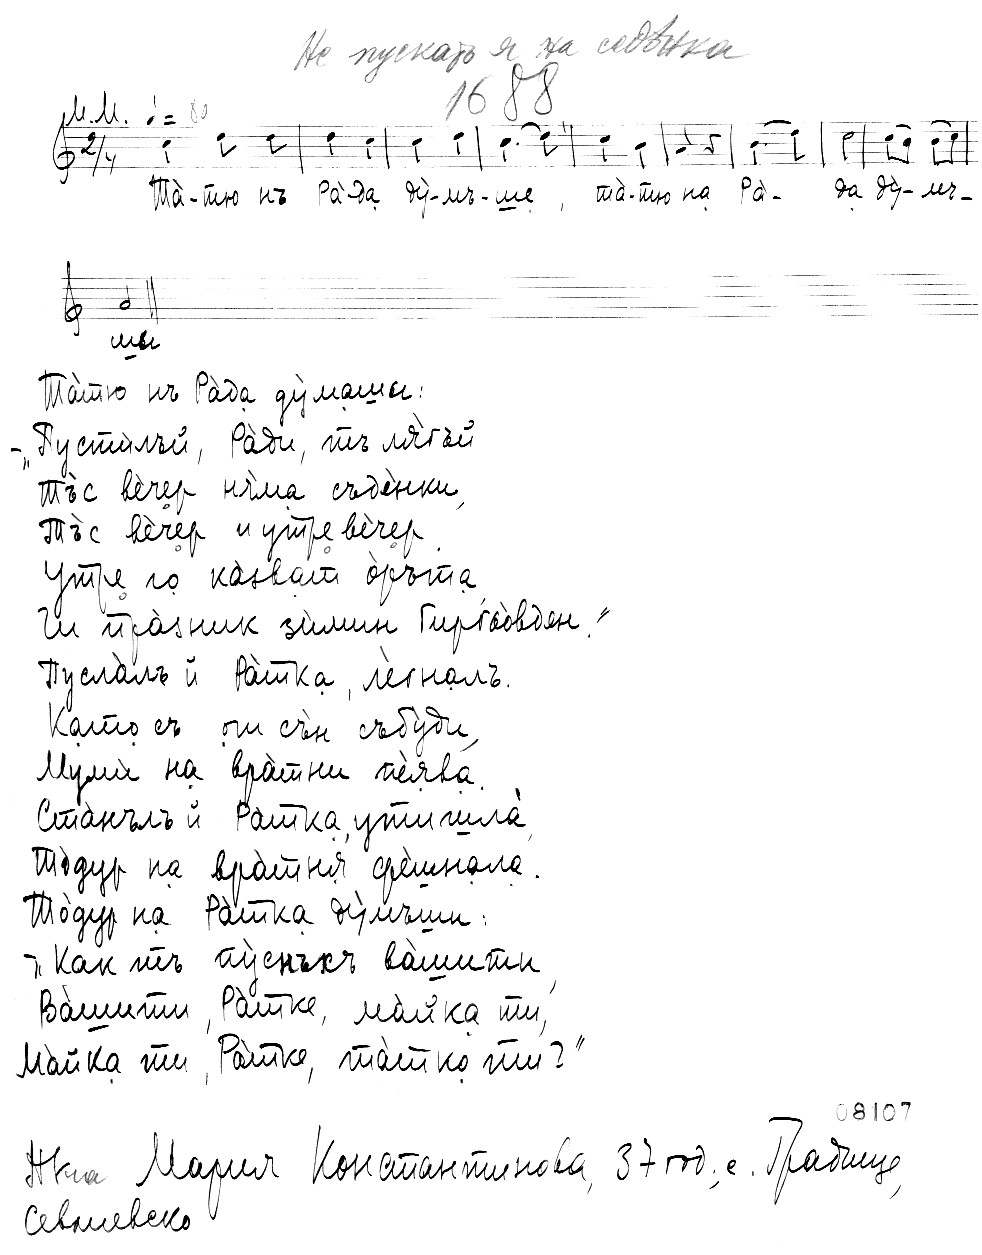 Не пускатъ я на седянка
1688
М.М. ♩ = 80
2/4
Та̀-тю нъ Ра̀-да ду̀-мъ-ше, та̀-тю на Ра̀- да ду̀-мъ-
ши
Та̀тю нъ Ра̀да ду̀маши:
-„Пустилъй, Ра̀ди, тъ ля̀гъй
Тъ̀с вѐчер ня̀ма съдѐнки,
Тъ̀с вѐчер и утре вѐчер.
Утре го ка̀зват о̀ръта,
Чи пра̀зник зѝмин Гиргьо̀вден."
Пусла̀лъ й Ра̀тка, лѐгналъ.
Като съ от съ̀н събу̀ди,
Мумѝ на вра̀тни пѐява.
Ста̀нълъ й Ра̀тка, утишла̀,
То̀дур на вра̀тня срѐшнала.
То̀дур на Ра̀тка ду̀мъши:
-„Как тъ пу̀снъхъ ва̀шити,
Ва̀шити, Ра̀тке, ма̀йка ти,
Ма̀йка ти, Ра̀тке, та̀тко ти?"
08107
Мария Константинова, 37 год., с. Градище,
Севлиевско